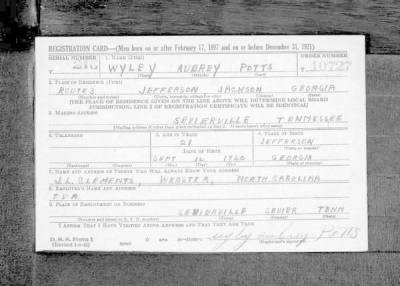 REGISTRATION CARD—(Men born on or after February 17, 1897 and on or before December 31, 1921)
SERIAL NUMBER 1. NAME (Print) ORDER NUMBER
WYLEY AUBREY POTTS 10727
(First) (Middle) (Last)
2. PLACE OF RESIDENCE (Print)
ROUTE 3 JEFFERSON JACKSON GEORGIA
(Number and street) (Town, township, village, or city) (County) (State)
[THE PLACE OF RESIDENCE GIVEN ON THE LINE ABOVE WILL DETERMINE LOCAL BOARD
JURISDICTION; LINE 2 OF REGISTRATION CERTIFICATE WILL BE IDENTICAL]
3. MAILING ADDRESS
SEVIERVILLE TENNESSEE
[Mailing address if other than place indicated on line 2. If same insert word same]
4. TELEPHONE 5. AGE IN YEARS 6. PLACE OF BIRTH
21 JEFFERSON
DATE OF BIRTH (Town or county)
SEPT 12 1920 GEORGIA
(Exchange) (Number) (Mo.) (Day) (Yr.) (State or country)
7. NAME AND ADDRESS OF PERSON WHO WILL ALWAYS KNOW YOUR ADDRESS
J.L. CLEMENTS, WEBSTER, NORTH CAROLINA
8. EMPLOYER'S NAME AND ADDRESS
T.V.A.
9. PLACE OF EMPLOYMENT OR BUSINESS
SEVIERVILLE SEVIER TENN
(Number and street or R. F. D. number) (Town) (County) (State)
I AFFIRM THAT I HAVE VERIFIED ABOVE ANSWERS AND THAT THEY ARE TRUE.
D. S. S. Form 1 (over)
(Revised 1-1-42) Wyley Aubrey Potts
(Registrant's signature)